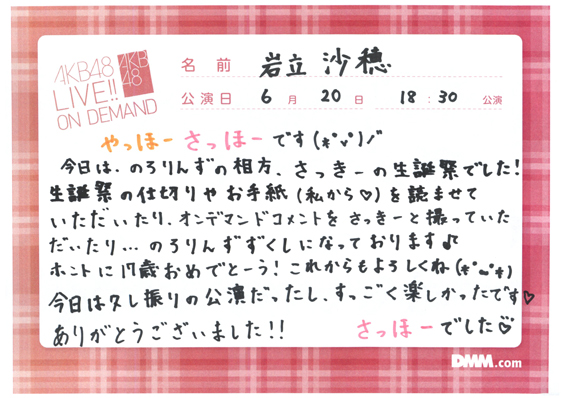 AKB48
LIVE!!
ON DEMAND
AKB
48
名前 岩立 沙穂
公演日 6月 20日 18:30 公演
やっほー さっほーです(*'ν')ノ
今日は、のろりんずの相方、さっきーの生誕祭でした!
生誕祭の仕切りやお手紙(私から♡)を読ませて
いただいたり、オンデマンドコメントをさっきーと撮っていた
だいたり...のろりんずずくしになっております♪
ホントに17歳おめでとーう!これからもよろしくね(*^~^*)
今日は久し振りの公演だったし、すっごく楽しかったです♡
ありがとうございました!! さっほーでした♡
DMM.com